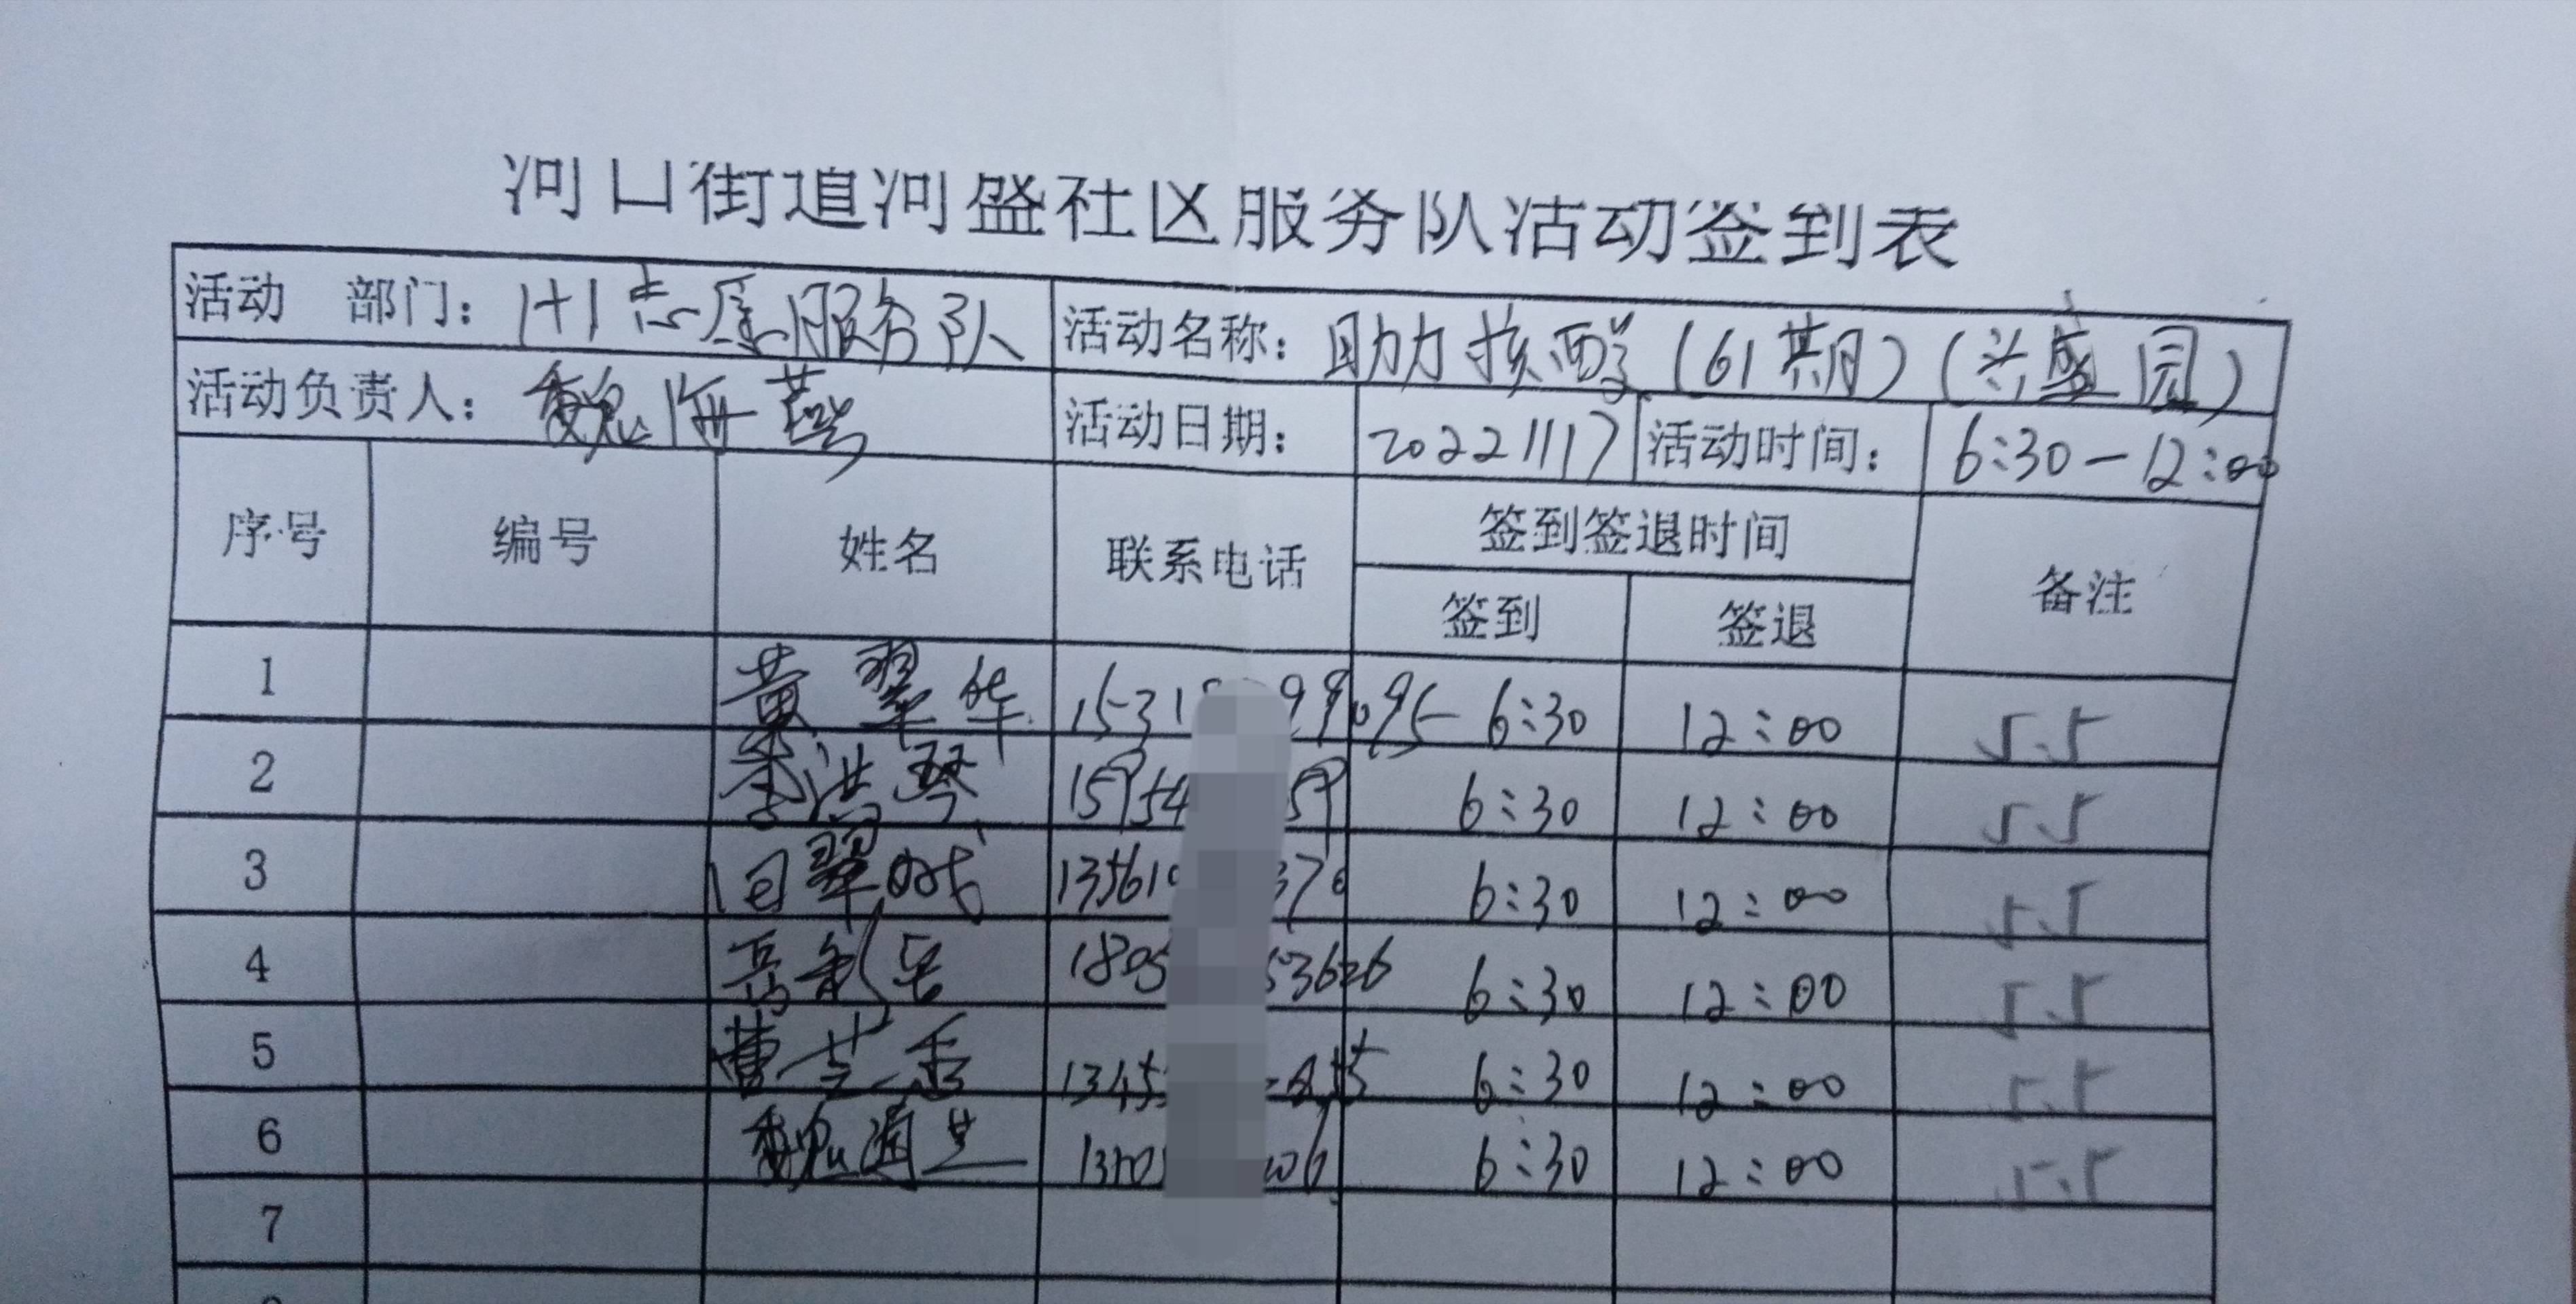 河口街道河盛社区服务队活动签到表
活动 部门：1+1志愿服务队 活动名称：助力核酸（61期）（兴盛园）
活动负责人：魏海燕 活动日期： 20221117 活动时间： 6:30-12:00
序号 编号 姓名 联系电话 签到签退时间 备注
签到 签退
1 黄翠华 6:30 12:00 5.5
2 李洪琴 6:30 12:00 5.5
3 6:30 12:00 5.5
4 6:30 12:00 5.5
5 曹兰香 6:30 12:00 5.5
6 6:30 12:00 5.5
7